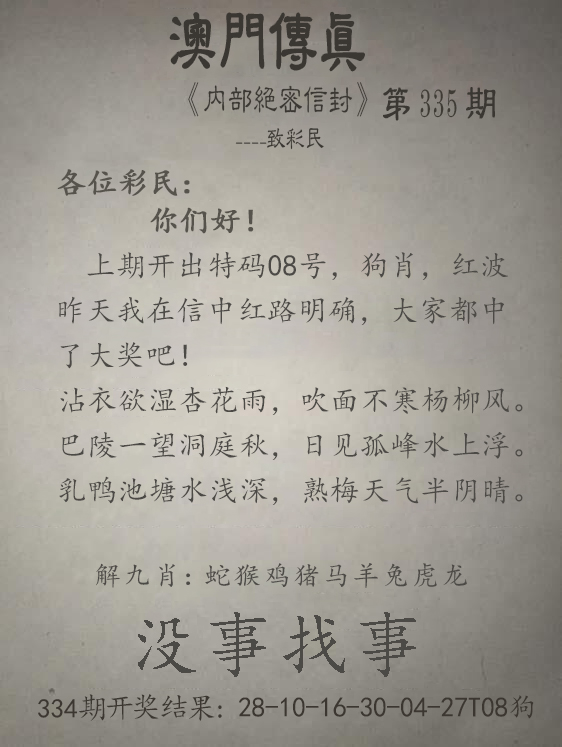 澳門傳真
《内部絕密信封》第335期
----致彩民
各位彩民：
你们好！
上期开出特码08号，狗肖，红波
昨天我在信中红路明确，大家都中
了大奖吧！
沾衣欲湿杏花雨，吹面不寒杨柳风。
巴陵一望洞庭秋，日见孤峰水上浮。
乳鸭池塘水浅深，熟梅天气半阴晴。
解九肖：蛇猴鸡猪马羊兔虎龙
没事找事
334期开奖结果：28-10-16-30-04-27T08狗